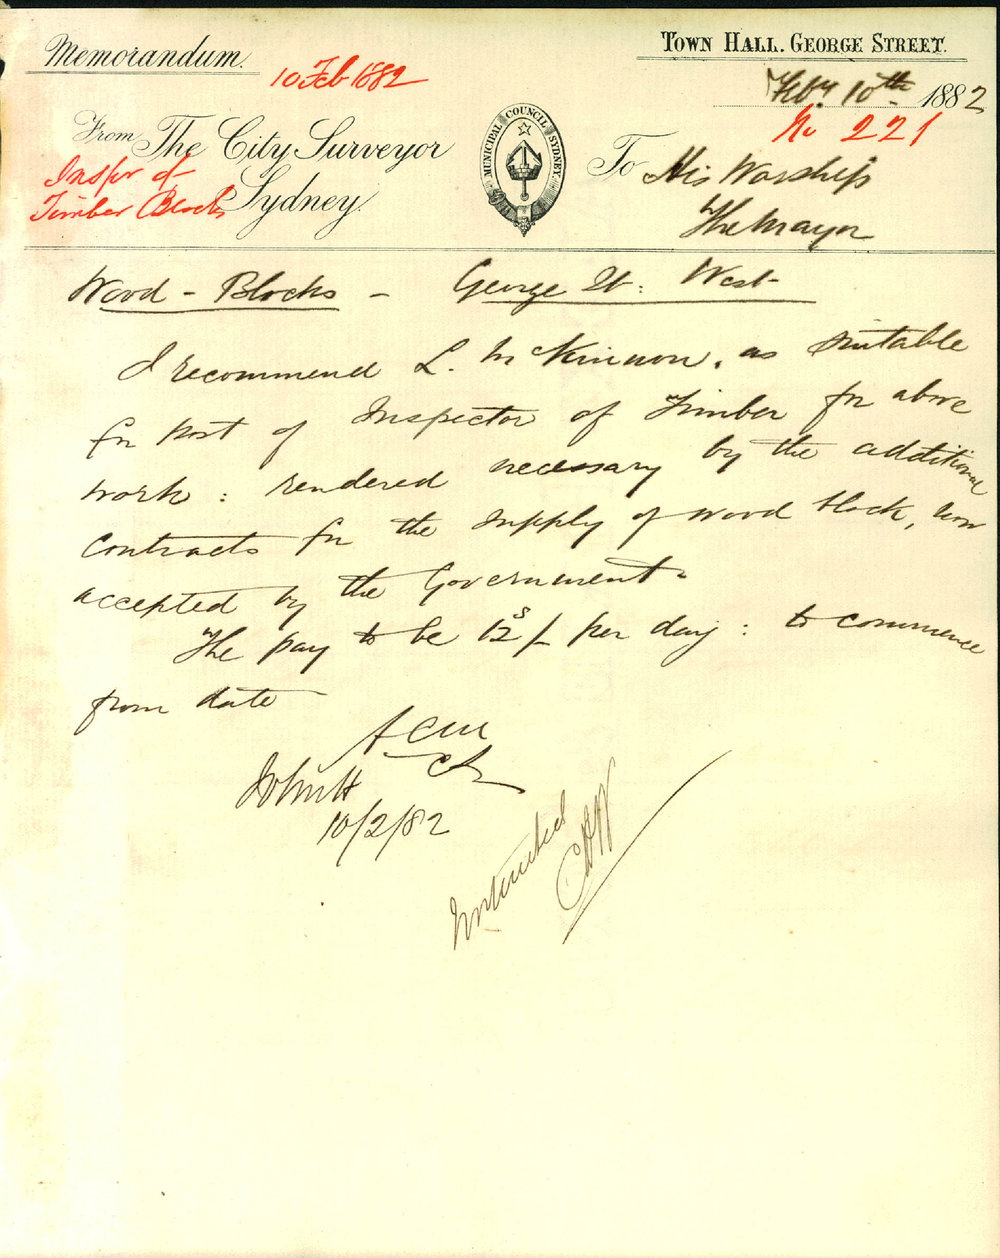 Memorandum.
10 Feb 1882
TOWN HALL. GEORGE STREET.
Feby 10th 1882
No 221
From The City Surveyor
Sydney.
Inspr of
Timber Blocks
MUNICIPAL COUNCIL SYDNEY
To His Worship
The Mayor
Wood - Blocks - George St: West
I recommend L. McKinnon, as suitable
for post of Inspector of Timber for above
work: rendered necessary by the additional
contracts for the supply of wood block, now
accepted by the Government.
The pay to be 12s/ per day: to commence
from date
10/2/82
Instructed